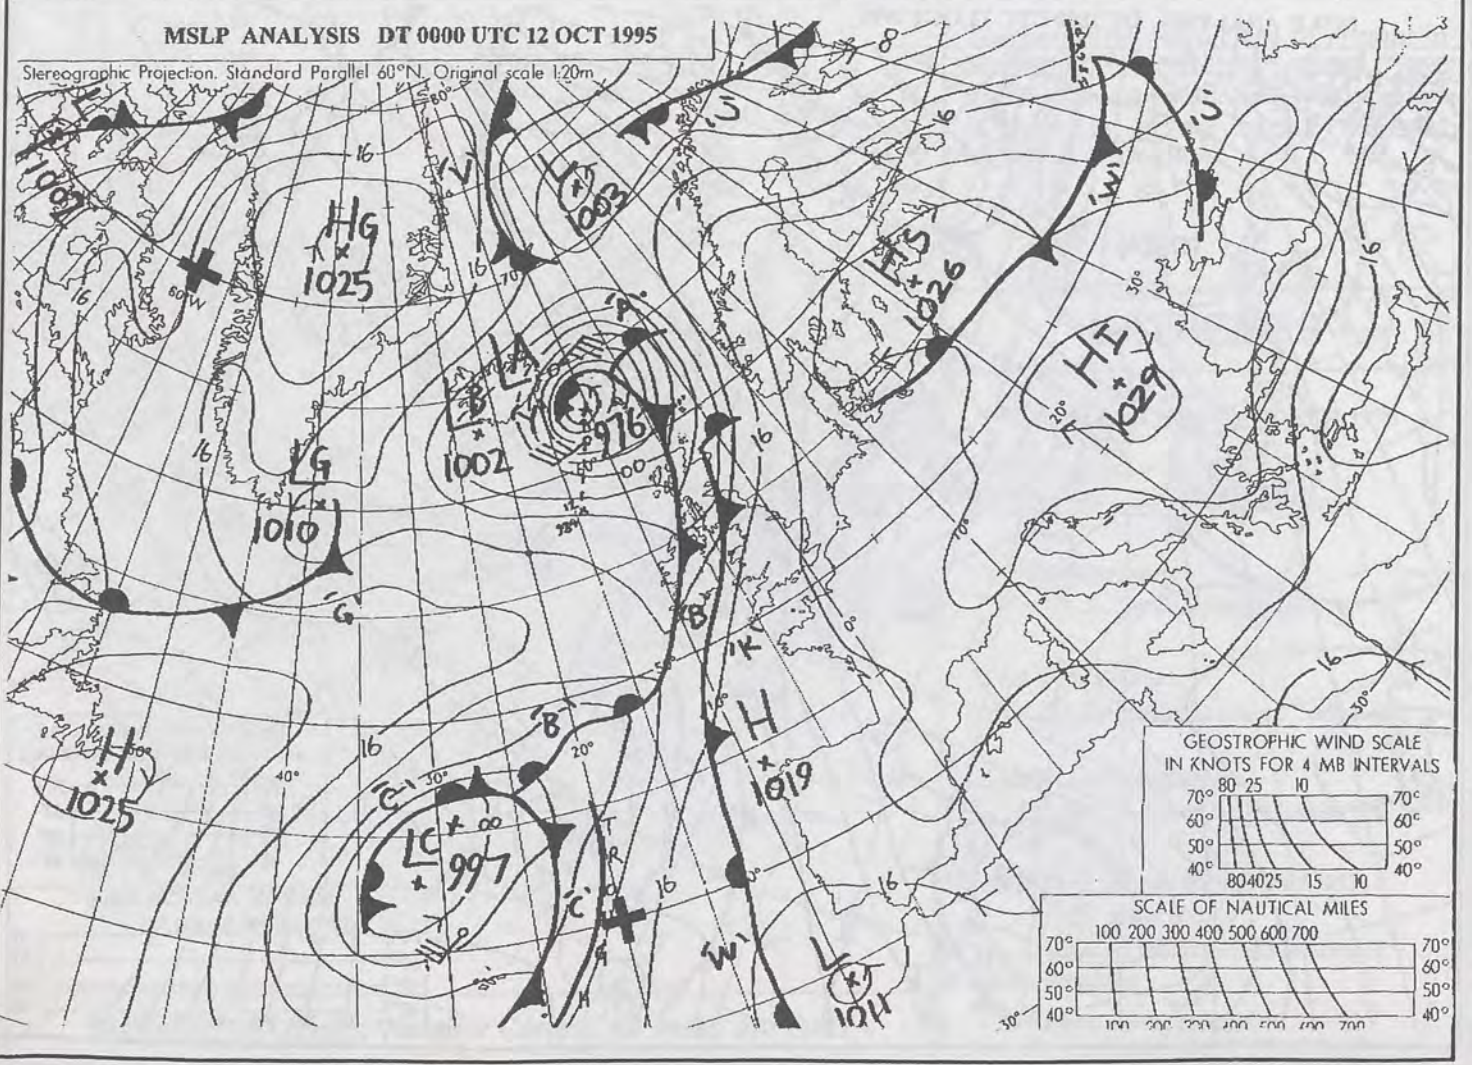 MSLP ANALYSIS DT 0000 UTC 12 OCT 1995
Stereographic Projection. Standard Parallel 60°N. Original scale 1:20m
80°
8
16
'U'
16
'U'
L
1003
HG
1025
16
70°
'W'
HS
1026
16
16
60°W
'A'
30°
LA
HI
1029
20°
976
1002
00
16
16
LG
1010
'G'
'B'
0°
0°
'K'
16
30°
H
1025
50°
16
'B'
20°
H
1019
40°
30°
'C'
LC
00
997
T
R
O
G
H
'C'
16
16
'W'
L
1011
30°
GEOSTROPHIC WIND SCALE
IN KNOTS FOR 4 MB INTERVALS
80 25 10
70° 70°
60° 60°
50° 50°
40° 40°
80 40 25 15 10
SCALE OF NAUTICAL MILES
100 200 300 400 500 600 700
70° 70°
60° 60°
50° 50°
40° 40°
100 200 300 400 500 600 700